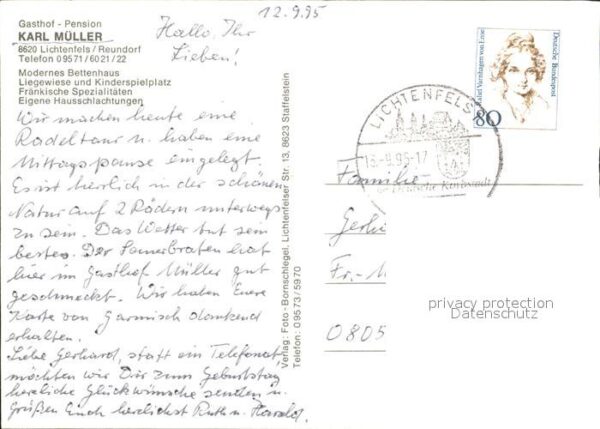 12.9.95
Gasthof - Pension
KARL MÜLLER
8620 Lichtenfels / Reundorf
Telefon 09571/6021/22
Modernes Bettenhaus
Liegewiese und Kinderspielplatz
Fränkische Spezialitäten
Eigene Hausschlachtungen
Hallo, Ihr
Lieben!
Wir machen heute eine
Radeltour u. haben eine
Mittagspause eingelegt.
Es ist herrlich in der schönen
Natur auf 2 Rädern unterwegs
zu sein. Das Wetter tut sein
bestes. Der Sauerbraten hat
hier im Gasthof Müller gut
geschmeckt. Wir haben Euere
Karte von Garmisch dankend
erhalten.
Liebe Gerhard, statt ein Telefonat,
möchten wir Dir zum Geburtstag
herzliche Glückwünsche senden u.
Grüßen Euch herzlichst Ruth u. Harald.
Verlag: Foto - Bornschlegel, Lichtenfelser Str. 13, 8623 Staffelstein
Telefon: 09573/5970
Rahel Varnhagen von Ense
Deutsche Bundespost
80
LICHTENFELS
13.-9.95-17
Deutsche Korbstadt
Familie
Gerh
Fr.-
0805
privacy protection
Datenschutz